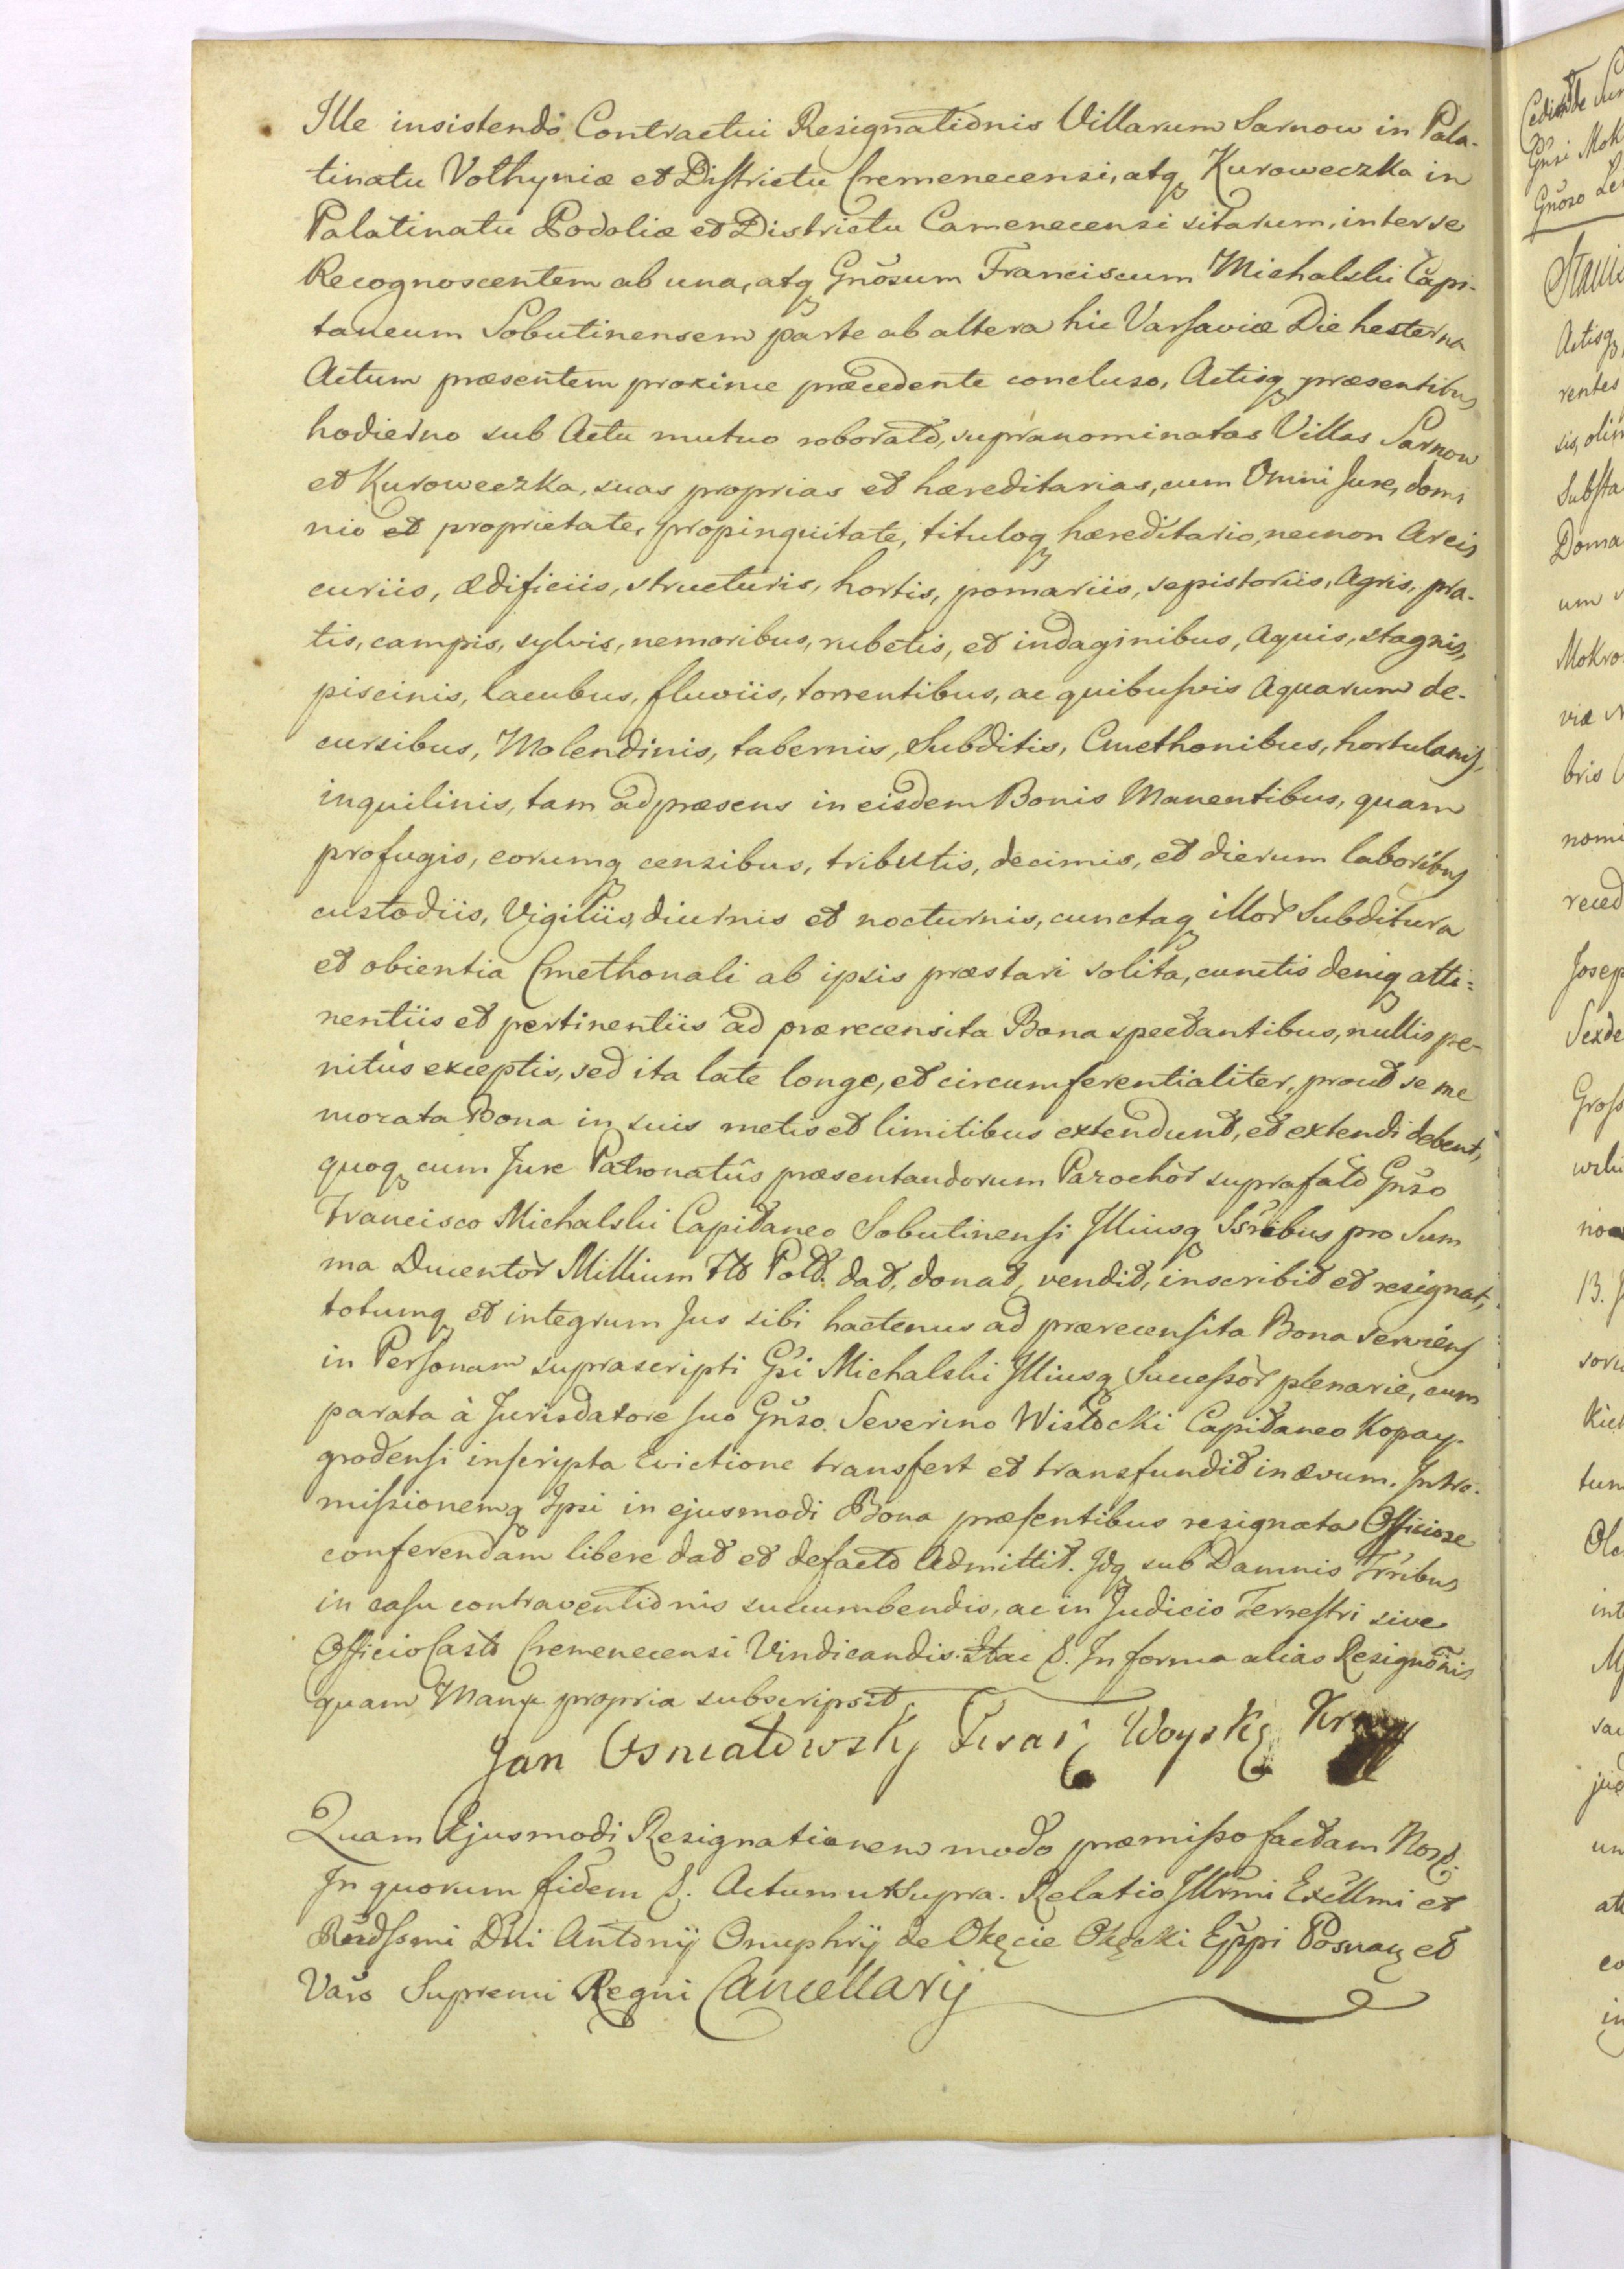 Ille insistendo Contractui Resignationis Villarum Sarnow in Pala-
tinatu Volhyniæ et Districtu Cremenecensi, atq Kuroweczka in
Palatinatu Podoliæ et Districtu Camenecensi sitarum, inter se
Recognoscentem ab una, atq Gnosum Franciscum Michalski Capi-
taneum Sobutinensem parte ab altera hic Varsaviæ Die hesterna
Actum præsentem proxime præcedente concluso, Actisq præsentibus
hodierno sub Actu mutuo roborato, supranominatas Villas Sarnow
et Kuroweczka, suas proprias et hæreditarias, cum Omni Jure, domi
nio et proprietate, propinquitate, tituloq hæreditario, necnon Areis
curiis, ædificiis, structuris, hortis, pomariis, sepistoriis, Agris, pra-
tis, campis, sylvis, nemoribus, rubetis, et indaginibus, Aquis, stagnis,
piscinis, lacubus, fluviis, torrentibus, ac quibusvis Aquarum de-
cursibus, Molendinis, tabernis, Subditis, Cmethonibus, hortulanis,
inquilinis, tam ad præsens in eisdem Bonis Manentibus, quam
profugis, eorumq censibus, tributis, decimis, et dierum laboribus
custodiis, Vigiliis, diurnis et nocturnis, cunctaq illor Subditura
et obientia Cmethonali ab ipsis præstari solita, cunctis deniq atti-
nentiis et pertinentiis ad prærecensita Bona spectantibus, nullis pe-
nitus exceptis, sed ita late longe, et circumferentialiter, prout se me
morata Bona in suis metis et limitibus extendunt, et extendi debent,
quoq cum Jure Patronatûs præsentandorum Parochor suprafato Gnso
Francisco Michalski Capitaneo Sobutinensi Illiusq Ssribus pro Sum
ma Ducentor Millium Flo Pold. dat, donat, vendit, inscribit et resignat,
totumq et integrum Jus sibi hactenus ad prærecensita Bona serviens
in Personam suprascripti Gsi Michalski Illiusq Successor plenarie, cum
parata à Jurisdatore suo Gnso. Severino Wisłocki Capitaneo Kopay-
grodensi inscripta Evictione transfert et transfundit in ævum. Intro-
missionemq Ipsi in ejusmodi Bona præsentibus resignata Officiose
conferendam libere dat et defacto Admittit. Idq sub Damnis Trribus
in casu contraventionis succumbendis, ac in Judicio Terrestri sive
Officio Casto Cremenecensi Vindicandis. Stai &. In forma alias Resignonis
quam Manu propria subscripsit.
Jan Osmałowsky
Quam Ejusmodi Resignationem modo præmisso factam Nos &.
In quorum fidem &. Actum ut supra. Relatio Illrmi Excllmi et
Rndssmi Dni Antonij Onuphrij de Okęcie Okęcki Eppi Posnan et
Vars Supremi Regni Cancellarij